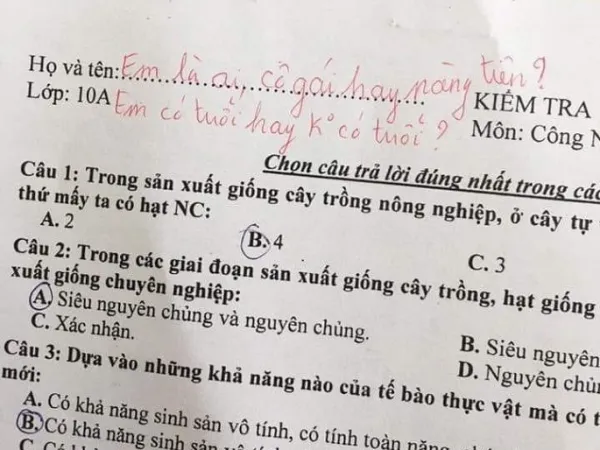 Họ và tên: Em là ai, cô gái hay nàng tiên?
KIỂM TRA
Lớp: 10A Em có tuổi hay K° có tuổi?
Môn: Công
Chọn câu trả lời đúng nhất trong các
Câu 1: Trong sản xuất giống cây trồng nông nghiệp, ở cây tự
thứ mấy ta có hạt NC:
A. 2 B. 4 C. 3
Câu 2: Trong các giai đoạn sản xuất giống cây trồng, hạt giống
xuất giống chuyên nghiệp:
A. Siêu nguyên chủng và nguyên chủng.
B. Siêu nguyên
C. Xác nhận.
D. Nguyên chủ
Câu 3: Dựa vào những khả năng nào của tế bào thực vật mà có t
mới:
A. Có khả năng sinh sản vô tính, có tính toàn năng
B. Có khả năng sinh sản vô tính